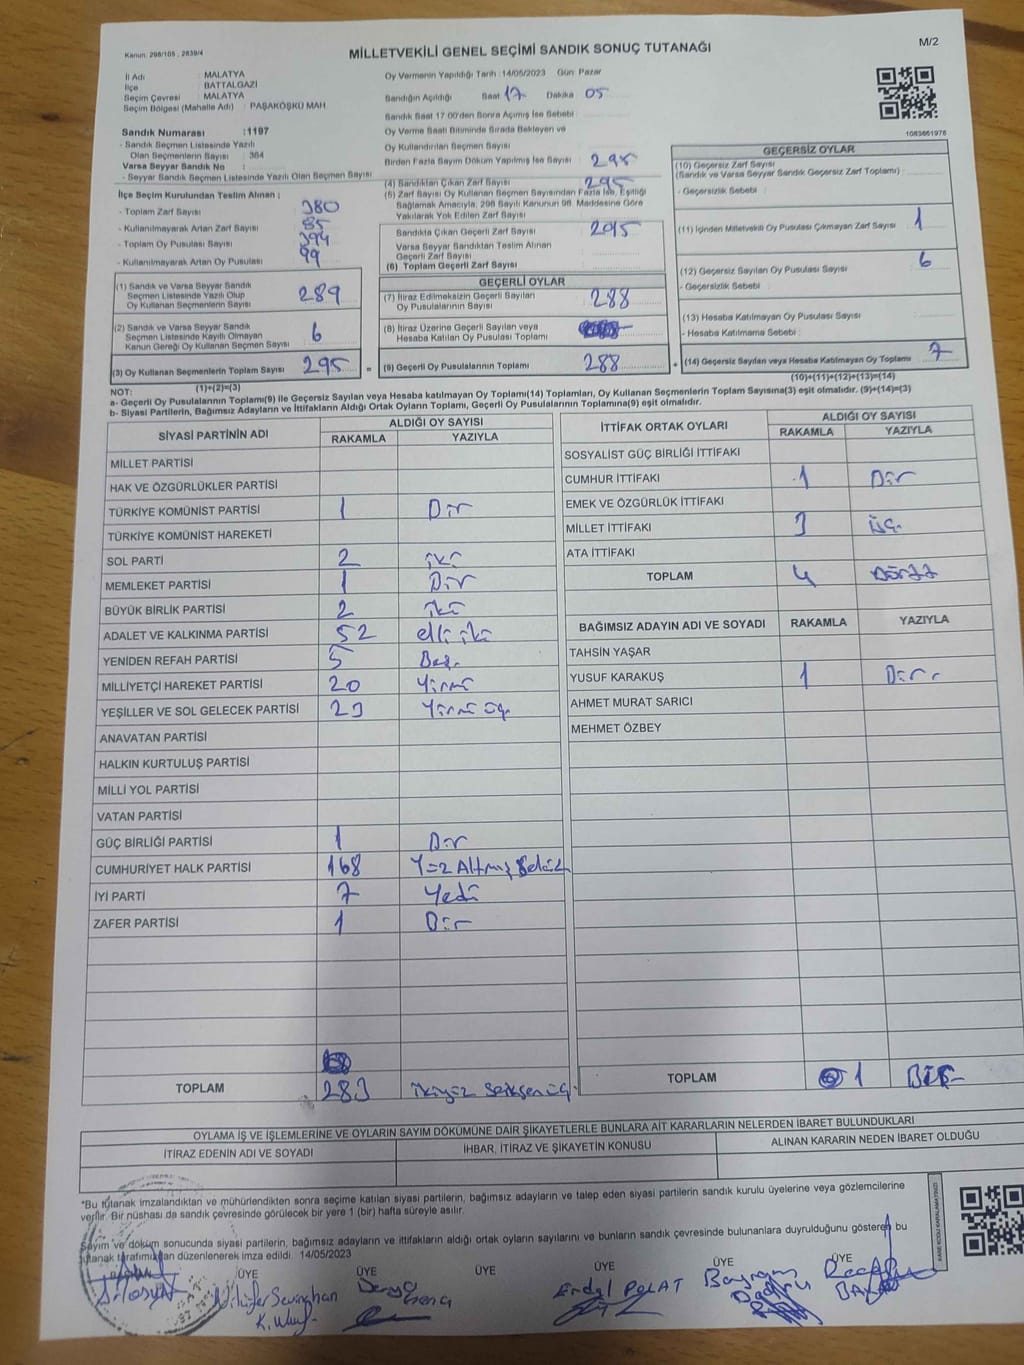 Kanun: 298/105 , 2839/4
MİLLETVEKİLİ GENEL SEÇİMİ SANDIK SONUÇ TUTANAĞI
M/2
İl Adı : MALATYA
İlçe : BATTALGAZİ
Seçim Çevresi : MALATYA
Seçim Bölgesi (Mahalle Adı) : PAŞAKÖŞKÜ MAH
Sandık Numarası :1197
- Sandık Seçmen Listesinde Yazılı
Olan Seçmenlerin Sayısı : 364
Varsa Seyyar Sandık No :
- Seyyar Sandık Seçmen Listesinde Yazılı Olan Seçmen Sayısı
Oy Vermenin Yapıldığı Tarih :14/05/2023 Gün: Pazar
Sandığın Açıldığı Saat 17 Dakika 05
Sandık Saat 17:00'den Sonra Açılmış İse Sebebi :
Oy Verme Saati Bitiminde Sırada Bekleyen ve
Oy Kullandırılan Seçmen Sayısı
Birden Fazla Sayım Döküm Yapılmış İse Sayısı : 295
1083661978
İlçe Seçim Kurulundan Teslim Alınan ;
- Toplam Zarf Sayısı : 380
- Kullanılmayarak Artan Zarf Sayısı : 85
- Toplam Oy Pusulası Sayısı : 394
- Kullanılmayarak Artan Oy Pusulası : 99
(1) Sandık ve Varsa Seyyar Sandık
Seçmen Listesinde Yazılı Olup
Oy Kullanan Seçmenlerin Sayısı 289
(2) Sandık ve Varsa Seyyar Sandık
Seçmen Listesinde Kayıtlı Olmayan
Kanun Gereği Oy Kullanan Seçmen Sayısı 6
(3) Oy Kullanan Seçmenlerin Toplam Sayısı 295
(1)+(2)=(3)
(4) Sandıktan Çıkan Zarf Sayısı : 295
(5) Zarf Sayısı Oy Kullanan Seçmen Sayısından Fazla İse, Eşitliği
Sağlamak Amacıyla, 298 Sayılı Kanunun 98. Maddesine Göre
Yakılarak Yok Edilen Zarf Sayısı :
Sandıkta Çıkan Geçerli Zarf Sayısı : 295
Varsa Seyyar Sandıktan Teslim Alınan
Geçerli Zarf Sayısı
(6) Toplam Geçerli Zarf Sayısı
GEÇERLİ OYLAR
(7) İtiraz Edilmeksizin Geçerli Sayılan
Oy Pusulalarının Sayısı 288
(8) İtiraz Üzerine Geçerli Sayılan veya
Hesaba Katılan Oy Pusulası Toplamı
= (9) Geçerli Oy Pusulalarının Toplamı 288
GEÇERSİZ OYLAR
(10) Geçersiz Zarf Sayısı
(Sandık ve Varsa Seyyar Sandık Geçersiz Zarf Toplamı) :
- Geçersizlik Sebebi :
(11) İçinden Milletvekili Oy Pusulası Çıkmayan Zarf Sayısı 1
(12) Geçersiz Sayılan Oy Pusulası Sayısı : 6
- Geçersizlik Sebebi :
(13) Hesaba Katılmayan Oy Pusulası Sayısı :
- Hesaba Katılmama Sebebi :
+ (14) Geçersiz Sayılan veya Hesaba Katılmayan Oy Toplamı 7
(10)+(11)+(12)+(13)=(14)
NOT:
a- Geçerli Oy Pusulalarının Toplamı(9) ile Geçersiz Sayılan veya Hesaba katılmayan Oy Toplamı(14) Toplamları, Oy Kullanan Seçmenlerin Toplam Sayısına(3) eşit olmalıdır. (9)+(14)=(3)
b- Siyasi Partilerin, Bağımsız Adayların ve İttifakların Aldığı Ortak Oyların Toplamı, Geçerli Oy Pusulalarının Toplamına(9) eşit olmalıdır.
SİYASİ PARTİNİN ADI
ALDIĞI OY SAYISI
RAKAMLA YAZIYLA
MİLLET PARTİSİ
HAK VE ÖZGÜRLÜKLER PARTİSİ
TÜRKİYE KOMÜNİST PARTİSİ 1 Bir
TÜRKİYE KOMÜNİST HAREKETİ
SOL PARTİ 2 iki
MEMLEKET PARTİSİ 1 Bir
BÜYÜK BİRLİK PARTİSİ 2 iki
ADALET VE KALKINMA PARTİSİ 52 elli iki
YENİDEN REFAH PARTİSİ 5 Beş
MİLLİYETÇİ HAREKET PARTİSİ 20 Yirmi
YEŞİLLER VE SOL GELECEK PARTİSİ 23 Yirmi üç
ANAVATAN PARTİSİ
HALKIN KURTULUŞ PARTİSİ
MİLLİ YOL PARTİSİ
VATAN PARTİSİ
GÜÇ BİRLİĞİ PARTİSİ 1 Bir
CUMHURİYET HALK PARTİSİ 168 Yüz Altmış Sekiz
İYİ PARTİ 7 Yedi
ZAFER PARTİSİ 1 Bir
TOPLAM 283 ikiyüz Seksen üç
İTTİFAK ORTAK OYLARI
ALDIĞI OY SAYISI
RAKAMLA YAZIYLA
SOSYALİST GÜÇ BİRLİĞİ İTTİFAKI
CUMHUR İTTİFAKI 1 Bir
EMEK VE ÖZGÜRLÜK İTTİFAKI
MİLLET İTTİFAKI 3 üç
ATA İTTİFAKI
TOPLAM 4 Dört
BAĞIMSIZ ADAYIN ADI VE SOYADI RAKAMLA YAZIYLA
TAHSİN YAŞAR
YUSUF KARAKUŞ 1 Bir
AHMET MURAT SARICI
MEHMET ÖZBEY
TOPLAM 1 BİR
OYLAMA İŞ VE İŞLEMLERİNE VE OYLARIN SAYIM DÖKÜMÜNE DAİR ŞİKAYETLERLE BUNLARA AİT KARARLARIN NELERDEN İBARET BULUNDUKLARI
İTİRAZ EDENİN ADI VE SOYADI İHBAR, İTİRAZ VE ŞİKAYETİN KONUSU ALINAN KARARIN NEDEN İBARET OLDUĞU
*Bu tutanak imzalandıktan ve mühürlendikten sonra seçime katılan siyasi partilerin, bağımsız adayların ve talep eden siyasi partilerin sandık kurulu üyelerine veya gözlemcilerine
verilir. Bir nüshası da sandık çevresinde görülecek bir yere 1 (bir) hafta süreyle asılır.
Sayım ve döküm sonucunda siyasi partilerin, bağımsız adayların ve ittifakların aldığı ortak oyların sayılarını ve bunların sandık çevresinde bulunanlara duyurulduğunu gösteren bu
tutanak tarafımızdan düzenlenerek imza edildi. 14/05/2023
BAŞKAN ÜYE ÜYE ÜYE ÜYE ÜYE ÜYE
Nilüfer Sevinghan
Erdal POLAT
Bayram